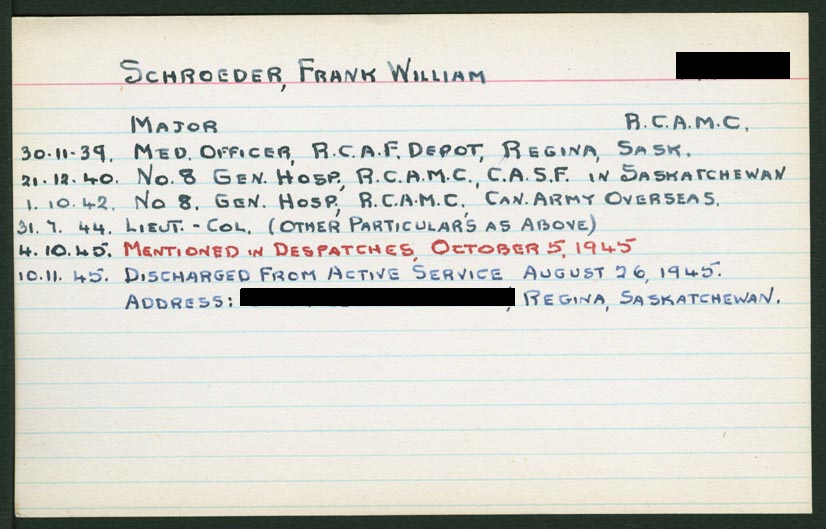 SCHROEDER, FRANK WILLIAM
MAJOR R.C.A.M.C.
30.11.39. MED. OFFICER, R.C.A.F. DEPOT, REGINA, SASK.
21.12.40. NO. 8 GEN. HOSP., R.C.A.M.C., C.A.S.F. IN SASKATCHEWAN
1.10.42. NO 8. GEN. HOSP., R.C.A.M.C. CAN. ARMY OVERSEAS.
31.7.44. LIEUT. - COL. (OTHER PARTICULAR'S AS ABOVE)
4.10.45. MENTIONED IN DESPATCHES, OCTOBER 5, 1945
10.11.45. DISCHARGED FROM ACTIVE SERVICE AUGUST 26, 1945.
ADDRESS: , REGINA, SASKATCHEWAN.